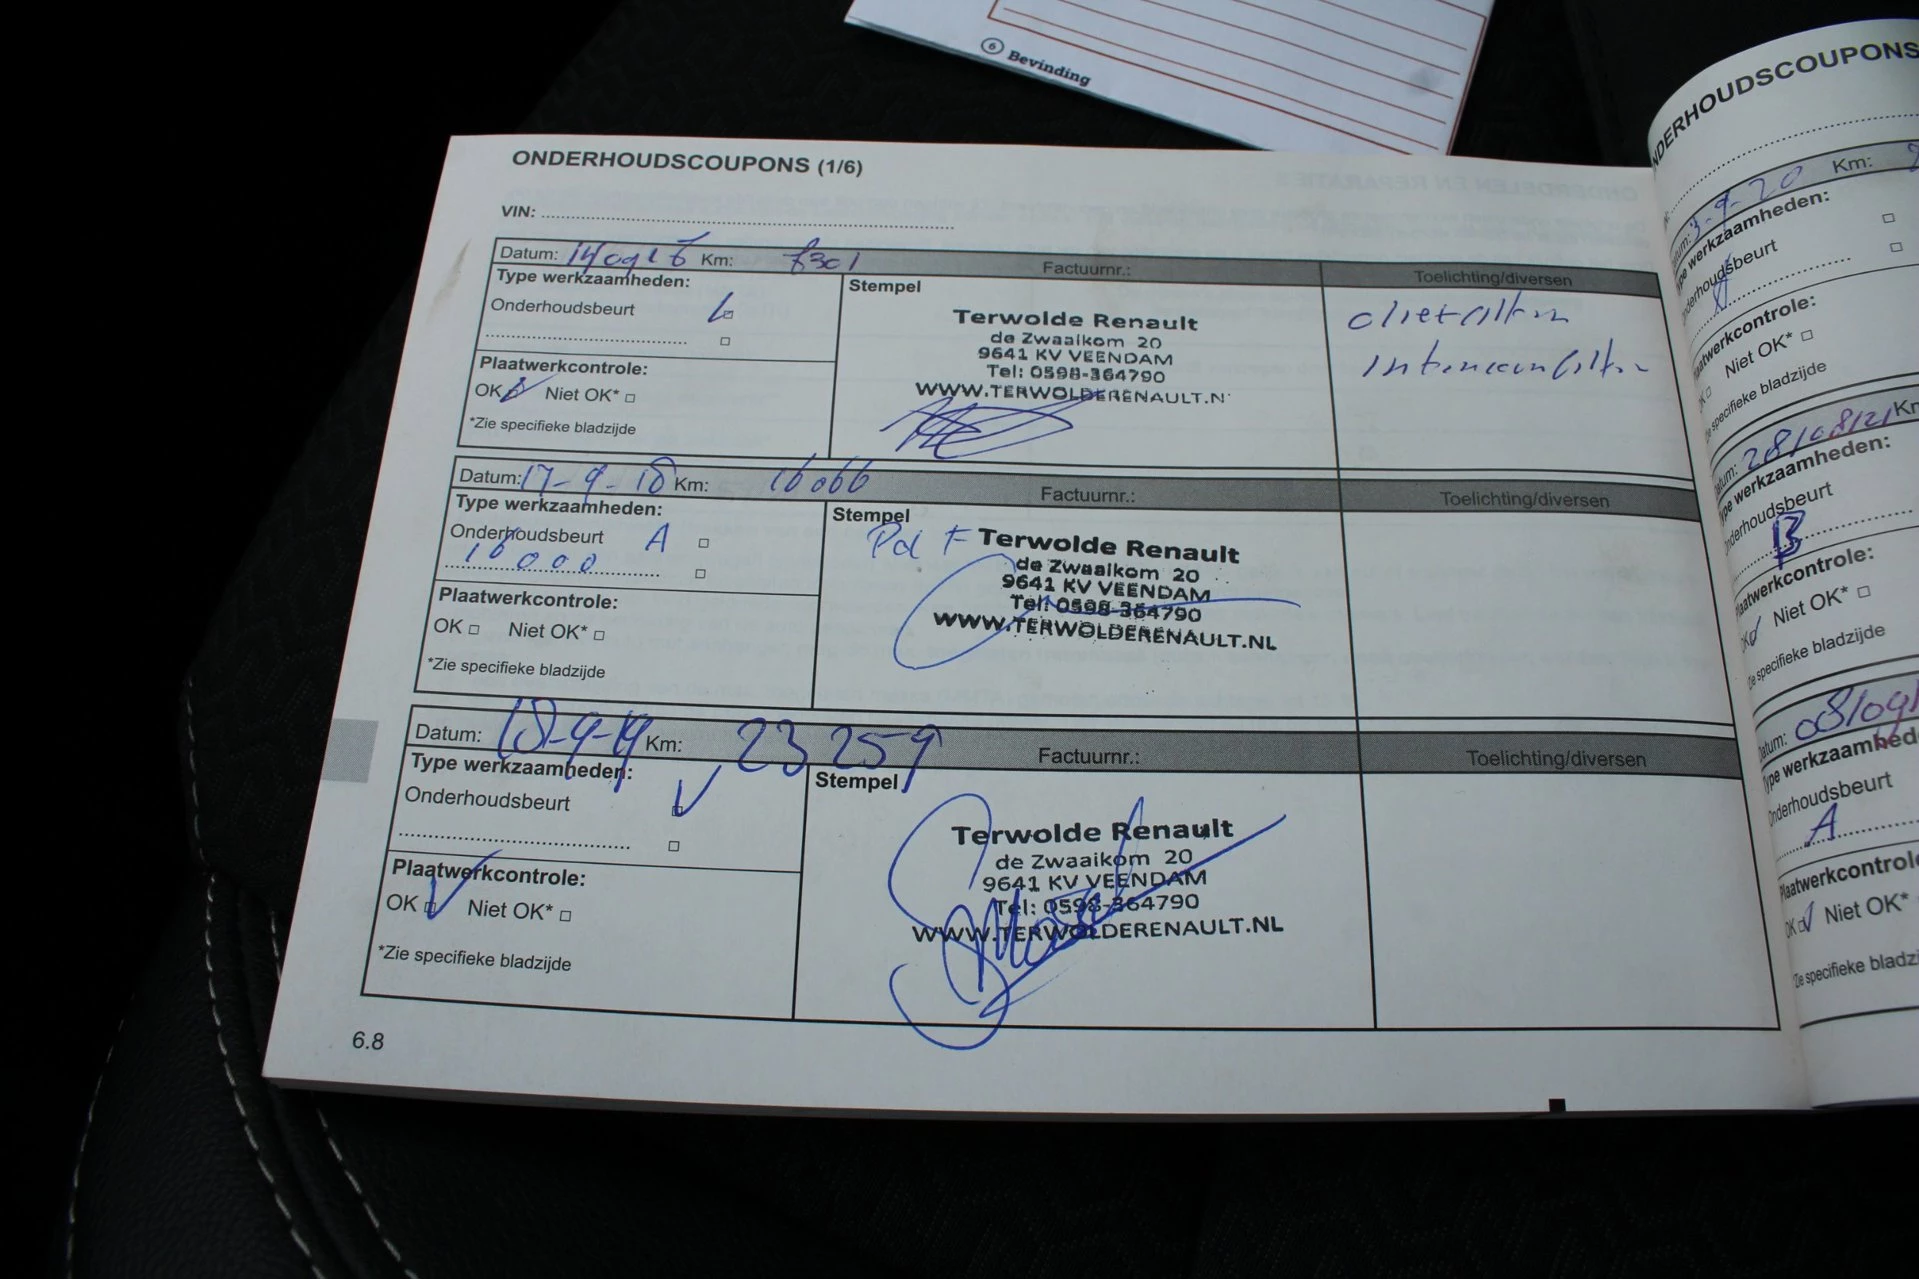 6 Bevinding
ONDERHOUDSCOUPONS (1/6)
VIN:
Datum: Km: Factuurnr.: Toelichting/diversen
Type werkzaamheden:
Onderhoudsbeurt
Plaatwerkcontrole:
OK Niet OK*
*Zie specifieke bladzijde
Stempel
Terwolde Renault
de Zwaaikom 20
9641 KV VEENDAM
Tel: 0598-364790
WWW.TERWOLDERENAULT.N
oliefilter
Interieurfilter
Datum: 17-9-18 Km: 16066 Factuurnr.: Toelichting/diversen
Type werkzaamheden:
Onderhoudsbeurt A
16000
Plaatwerkcontrole:
OK Niet OK*
*Zie specifieke bladzijde
Stempel
Terwolde Renault
de Zwaaikom 20
9641 KV VEENDAM
Tel: 0598-364790
WWW.TERWOLDERENAULT.NL
Datum: 18-9-19 Km: 23259 Factuurnr.: Toelichting/diversen
Type werkzaamheden:
Onderhoudsbeurt
Plaatwerkcontrole:
OK Niet OK*
*Zie specifieke bladzijde
Stempel
Terwolde Renault
de Zwaaikom 20
9641 KV VEENDAM
Tel: 0598-364790
WWW.TERWOLDERENAULT.NL
6.8
ONDERHOUDSCOUPONS
Km:
Type werkzaamheden:
Onderhoudsbeurt
Plaatwerkcontrole:
OK Niet OK*
specifieke bladzijde
Datum: 28/08/21
Type werkzaamheden:
Onderhoudsbeurt
B
Plaatwerkcontrole:
OK Niet OK*
Zie specifieke bladzijde
Datum: 08/09/
Type werkzaamhed
Onderhoudsbeurt
A
Plaatwerkcontrole
OK Niet OK*
Zie specifieke bladzi